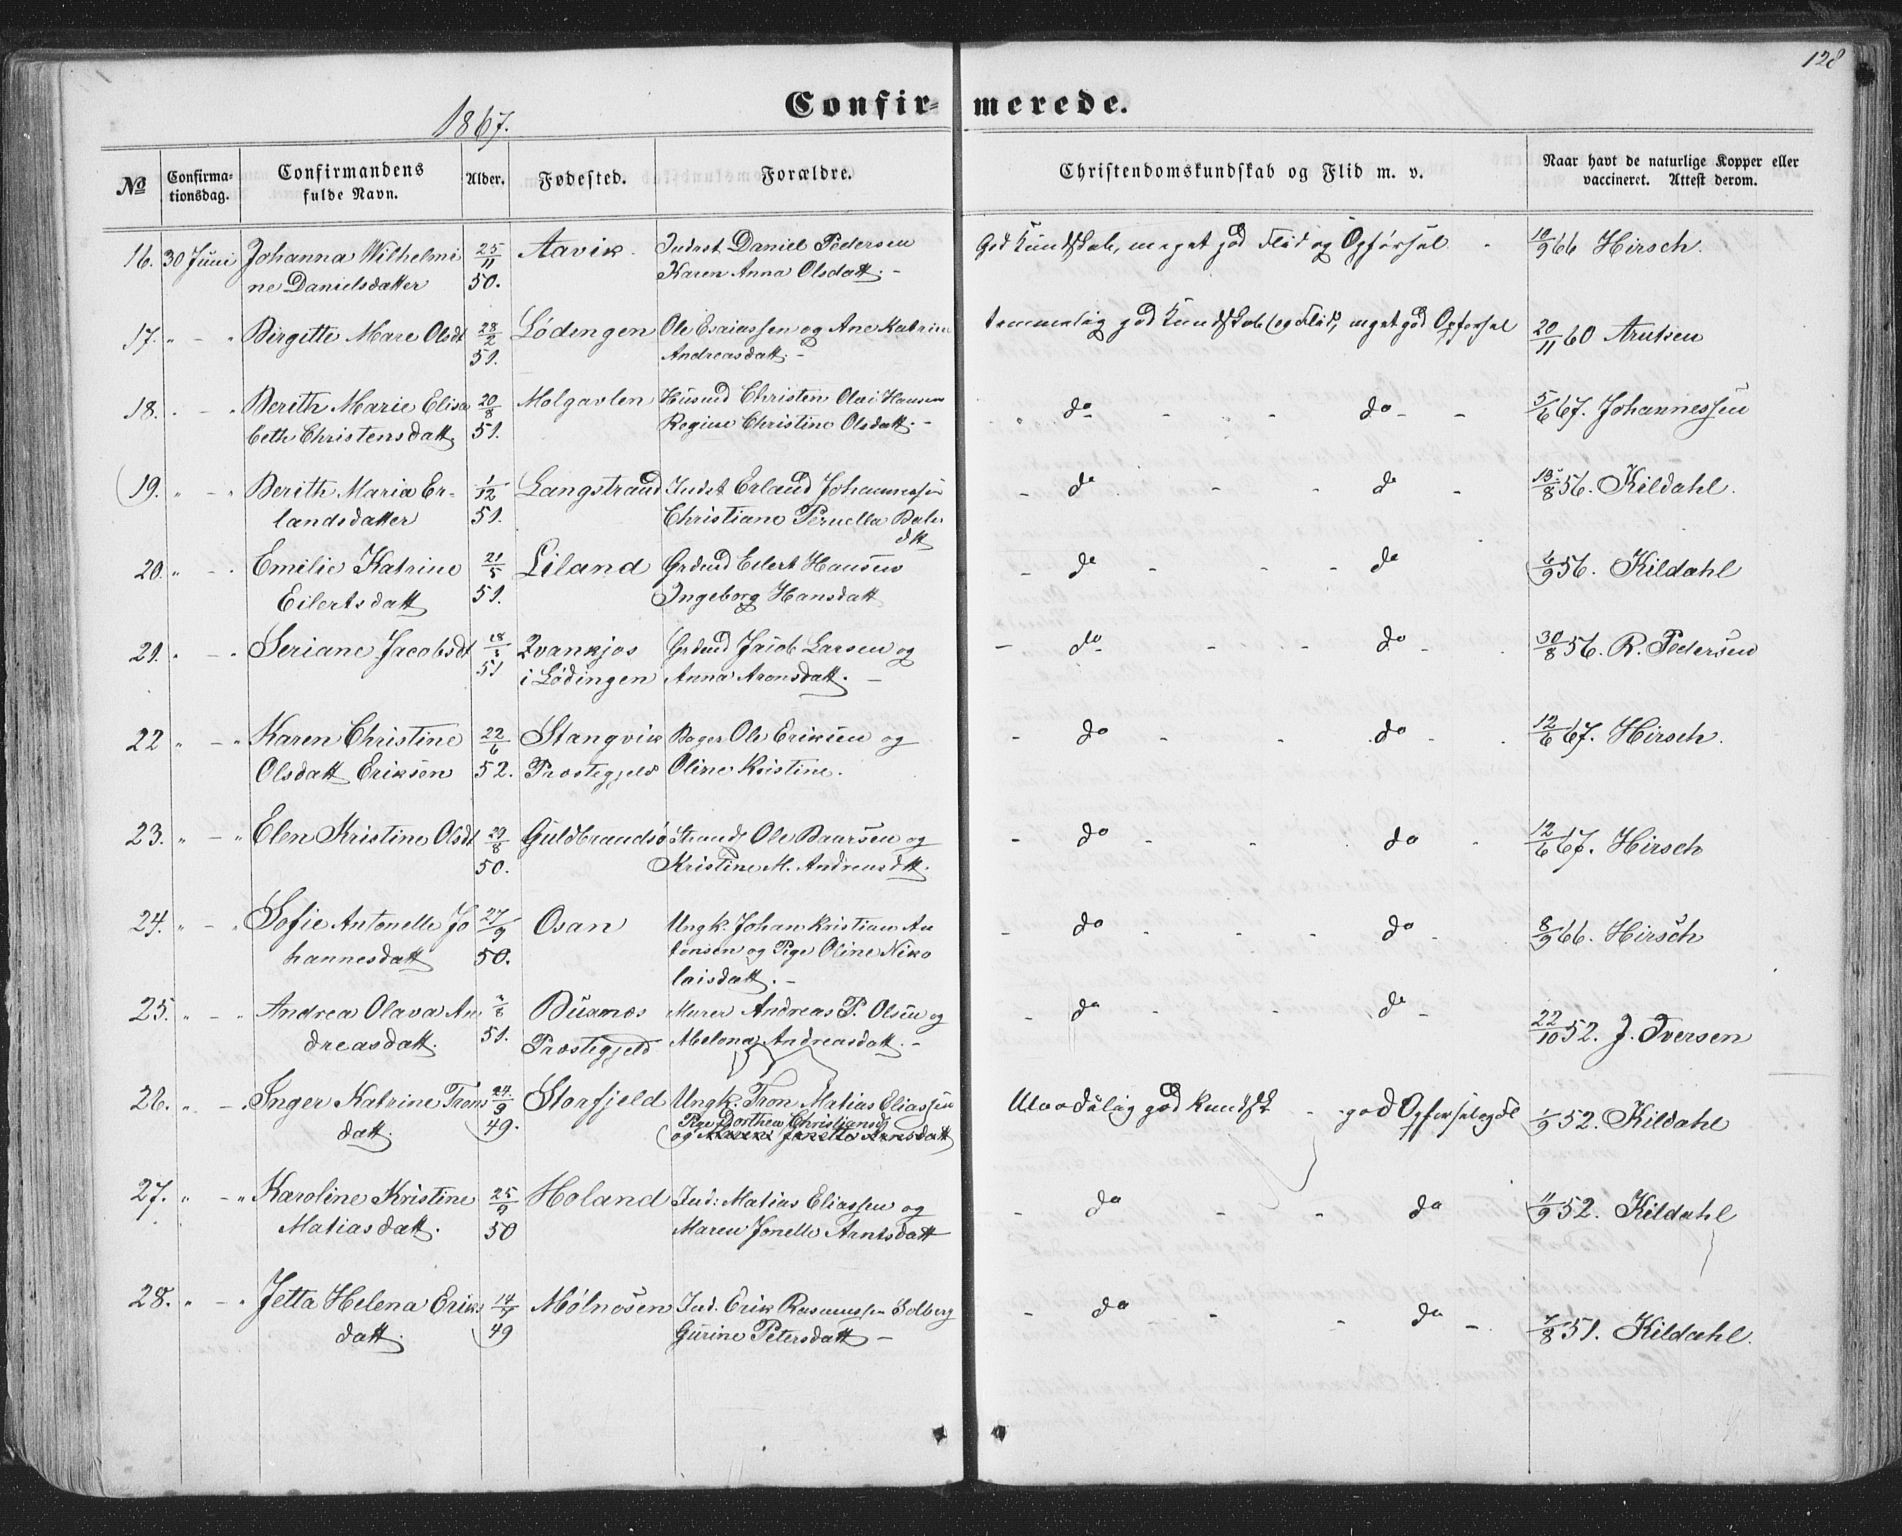 128
1867.
Confir- merede.
No
Confirma-
tionsdag.
Confirmandens
fulde Navn.
Alder.
Fødested.
Forældre.
Christendomskundskab og Flid m. v.
Naar havt de naturlige Kopper eller
vaccineret. Attest derom.
16. 30 Juni Johanna Wilhelmi 25/11 Aavik. Indst Daniel Pedersen God Kundskab, meget god Flid og Opførsel 10/9 66 Hirsch.
ne Danielsdatter 50. Karen Anna Olsdatt. -
17. " - " Birgitte Mare Olsdt 28/2 Lødingen Ole Esaiassen og Ane Katrine temmelig god Kundskab (og Flid, meget god Opførsel 20/11 60 Arntsen
51. Andreasdatt. -
18. " - " Berith Marie Elisa 20/8 Molgavlen Husmd Christen Olai Hansen " do - - do - - 5/6 67. Johannessen
beth Christensdatt. 51. Regine Christine Olsdatt. -
(19. " - " Berith Maria Er- 1/12 Langstrand Indst Erland Johannessen - do - - do - 13/8 56. Kildahl.
landsdatter 51. Christiane Pernella Bals
dtt
20. " - " Emilie Katrine 21/5 Liland Grdmd Eilert Hansen - do - - - do 6/9 56. Kildahl
Eilertsdatt 51. Ingeborg Hansdatt
21. " - " Seriane Jacobsdt 18/ Kvankjos Grdmd Jacob Larsen og - do - - - do - 30/8 56. R. Pedersen
51 i Lødingen Anna Aronsdatt. -
22 " - " Karen Christine 22/6 Stangvik Bager Ole Eriksen og - do - - do - 12/6 67. Hirsch.
Olsdatt Eriksen 52. Præstegjeld Oline Kristine.
23. " - " Elen Kristine Olsdt 29/8 Guldbrandsø Strands Ole Baarsen og - do - - do - 12/6 67. Hirsch
50. Kristine M. Andreasdtt.
24. " - " Sofie Antonelle Jo 27/9 Osan Ungk. Johan Kristian An - do - - - do - 8/9 66. Hirsch
hannesdatt 50. tonsen og Pige Oline Niko
laisdatt. -
25. " - " Andrea Olava An Buxnæs Murer Andreas P. Olsen og - do - - do - 22/10 52. J. Iversen
dreasdatt. 51. Præstegjeld Melena Andreasdatt. -
26. " - " Inger Katrine Trons 24/9 Storfjeld Ungk. Tron Matias Eliassen Maadelig god Kundsk - - god Opførsel 1/9 52. Kildahl
datt. (49. Pige Dorthea Christiansd
og Maren Janetta Arnesdatt
27. " - " Karoline Kristine 25/9 Holand Ind: Matias Eliassen og - do - - do 11/9 52. Kildahl
Matiasdatt. 50 Maren Jonelle Arntsdatt
28. " - " Jetta Helena Eriks 14/7 Mølnosen Ind. Erik Rasmussen Solberg - do - - do - 7/8 51. Kildahl.
datt. (49 Gurine Petersdatt -